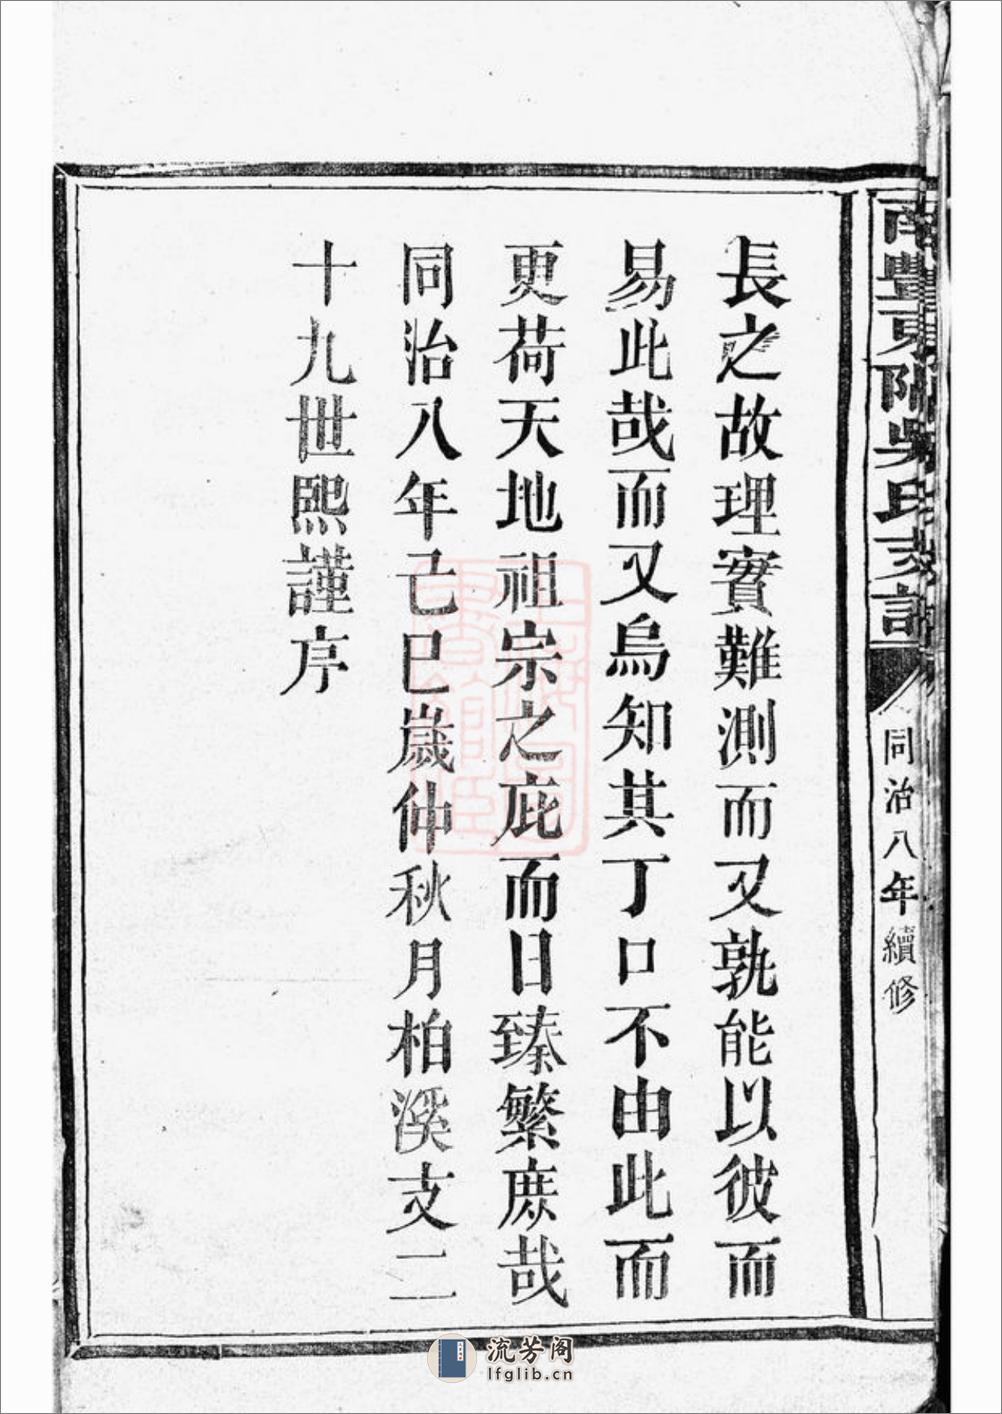 南豐東隅吳氏支譜
同治八年續修
長之故理實難測而又孰能以彼而
易此哉而又烏知其丁口不由此而
更荷天地祖宗之庇而日臻繁庶哉
同治八年己巳歲仲秋月柏溪支二
十九世熙謹序
流芳阁
lfglib.cn